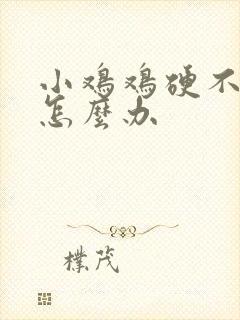 小鸡鸡硬不
怎麼办
樸茂